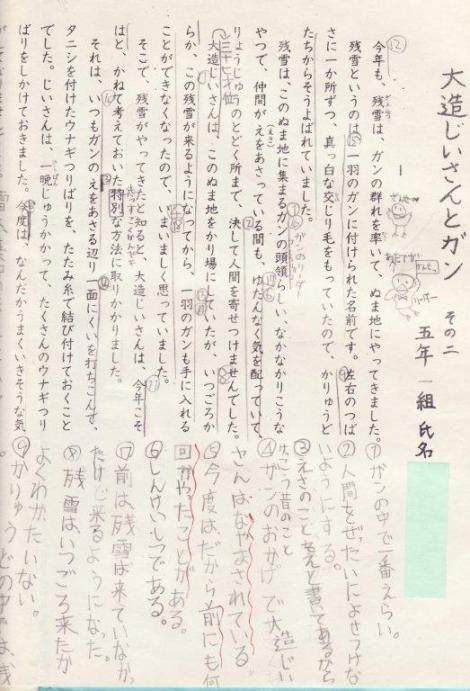 大造じいさんとガン
その二
五年一組 氏名
一
今年も、残雪は、ガンの群れを率いて、ぬま地にやってきました。
残雪というのは、一羽のガンに付けられた名前です。左右のつば
さに一か所ずつ、真っ白な交じり毛をもっていたので、かりゅうど
たちからそうよばれていました。
残雪は、このぬま地に集まるガンの頭領らしい、なかなかりこうな
やつで、仲間がえをあさっている間も、ゆだんなく気を配っていて、
りょうじゅうのとどく所まで、決して人間を寄せつけませんでした。
大造じいさんは、このぬま地をかり場にしていたが、いつごろか
らか、この残雪が来るようになってから、一羽のガンも手に入れる
ことができなくなったので、いまいましく思っていました。
そこで、残雪がやってきたと知ると、大造じいさんは、今年こそ
はと、かねて考えておいた特別な方法に取りかかりました。
それは、いつもガンのえをあさる辺り一面にくいを打ちこんで、
タニシを付けたウナギつりばりを、たたみ糸で結び付けておくこと
でした。じいさんは、一晩じゅうかかって、たくさんのウナギつり
ばりをしかけておきました。今度は、なんだかうまくいきそうな気
①ガンの中で一番えらい。
②人間をぜったいによせつけな
いようにする。
③えさのことをえと書いてあるから
けっこう昔のこと
④ガンのおかげで大造じい
さんはなやまされている。
⑤今度は、だから前にも何
回かやったことがある。
⑥しんけんしつである。
⑦前は残雪は来ていなかっ
たけど来るようになった。
⑧残雪はいつごろ来たか
よくわかたいない。
⑨かりゅうどの中では残